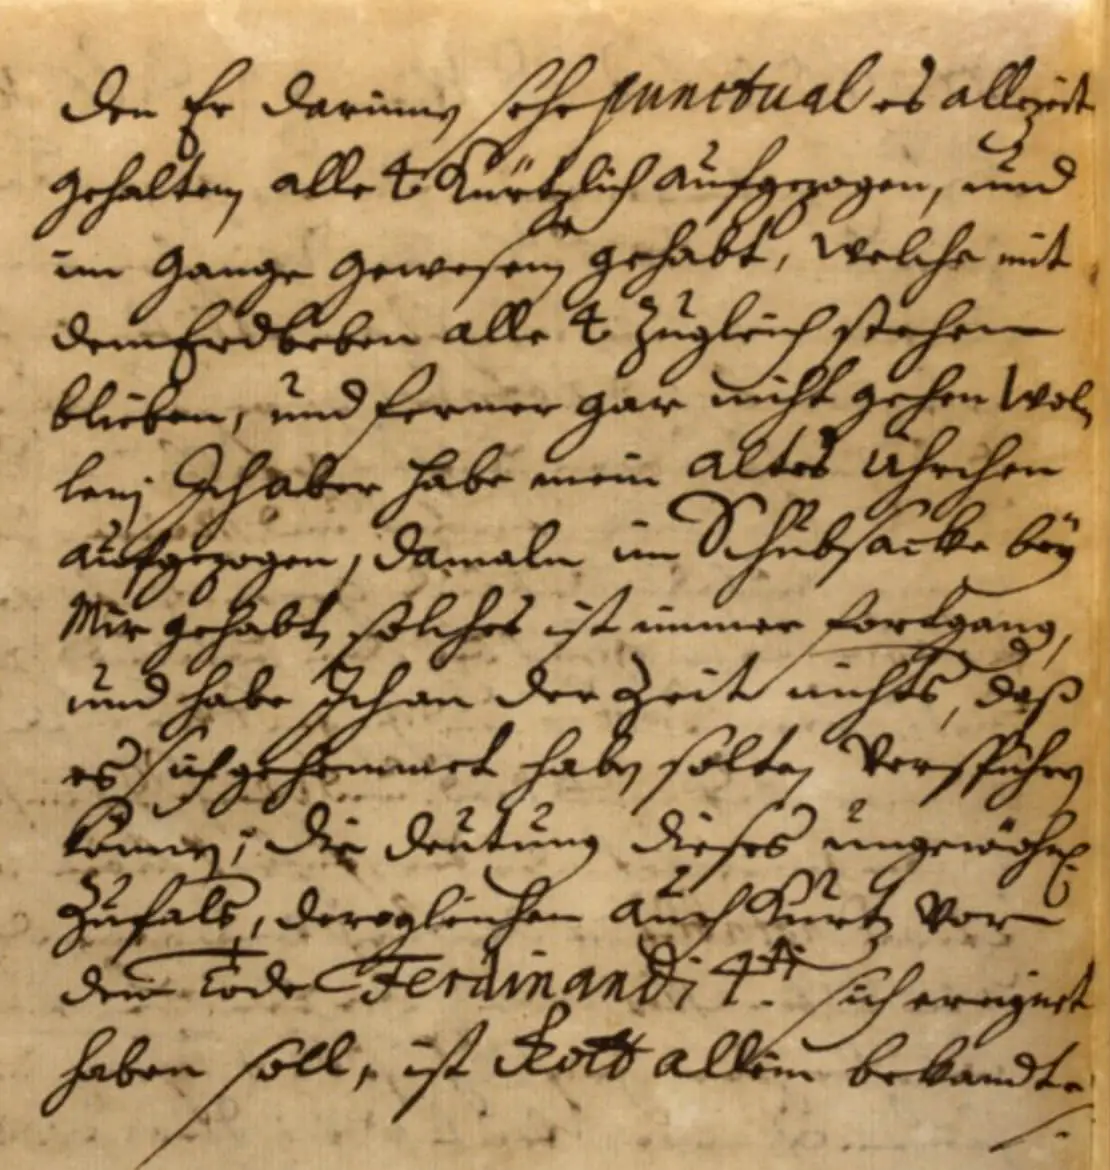 den Er darinnen sehr punctual es allezeit
gehalten alle 4 Kürtzlich aufgezogen, und
im Gange gewesen gehabt, welche mit
dem Erdbeben alle 4 zugleich stehen
blieben, und ferner gar nicht gehen wol,
len; Ich aber habe mein altes Ührchen
aufgezogen, damaln im Schübsacke bey
Mir gehabt, solches ist immer fortgang,
und habe Ich an der Zeit nichts, daß
es sich gehemmet haben solte, Verspühren
können; die deütung dieses ungewöhnl:
Zufals, dergleichen auch Kurtz vor
dem Tode Ferdinandi 4ti sich ereignet
haben soll, ist Gott allein bekandt.